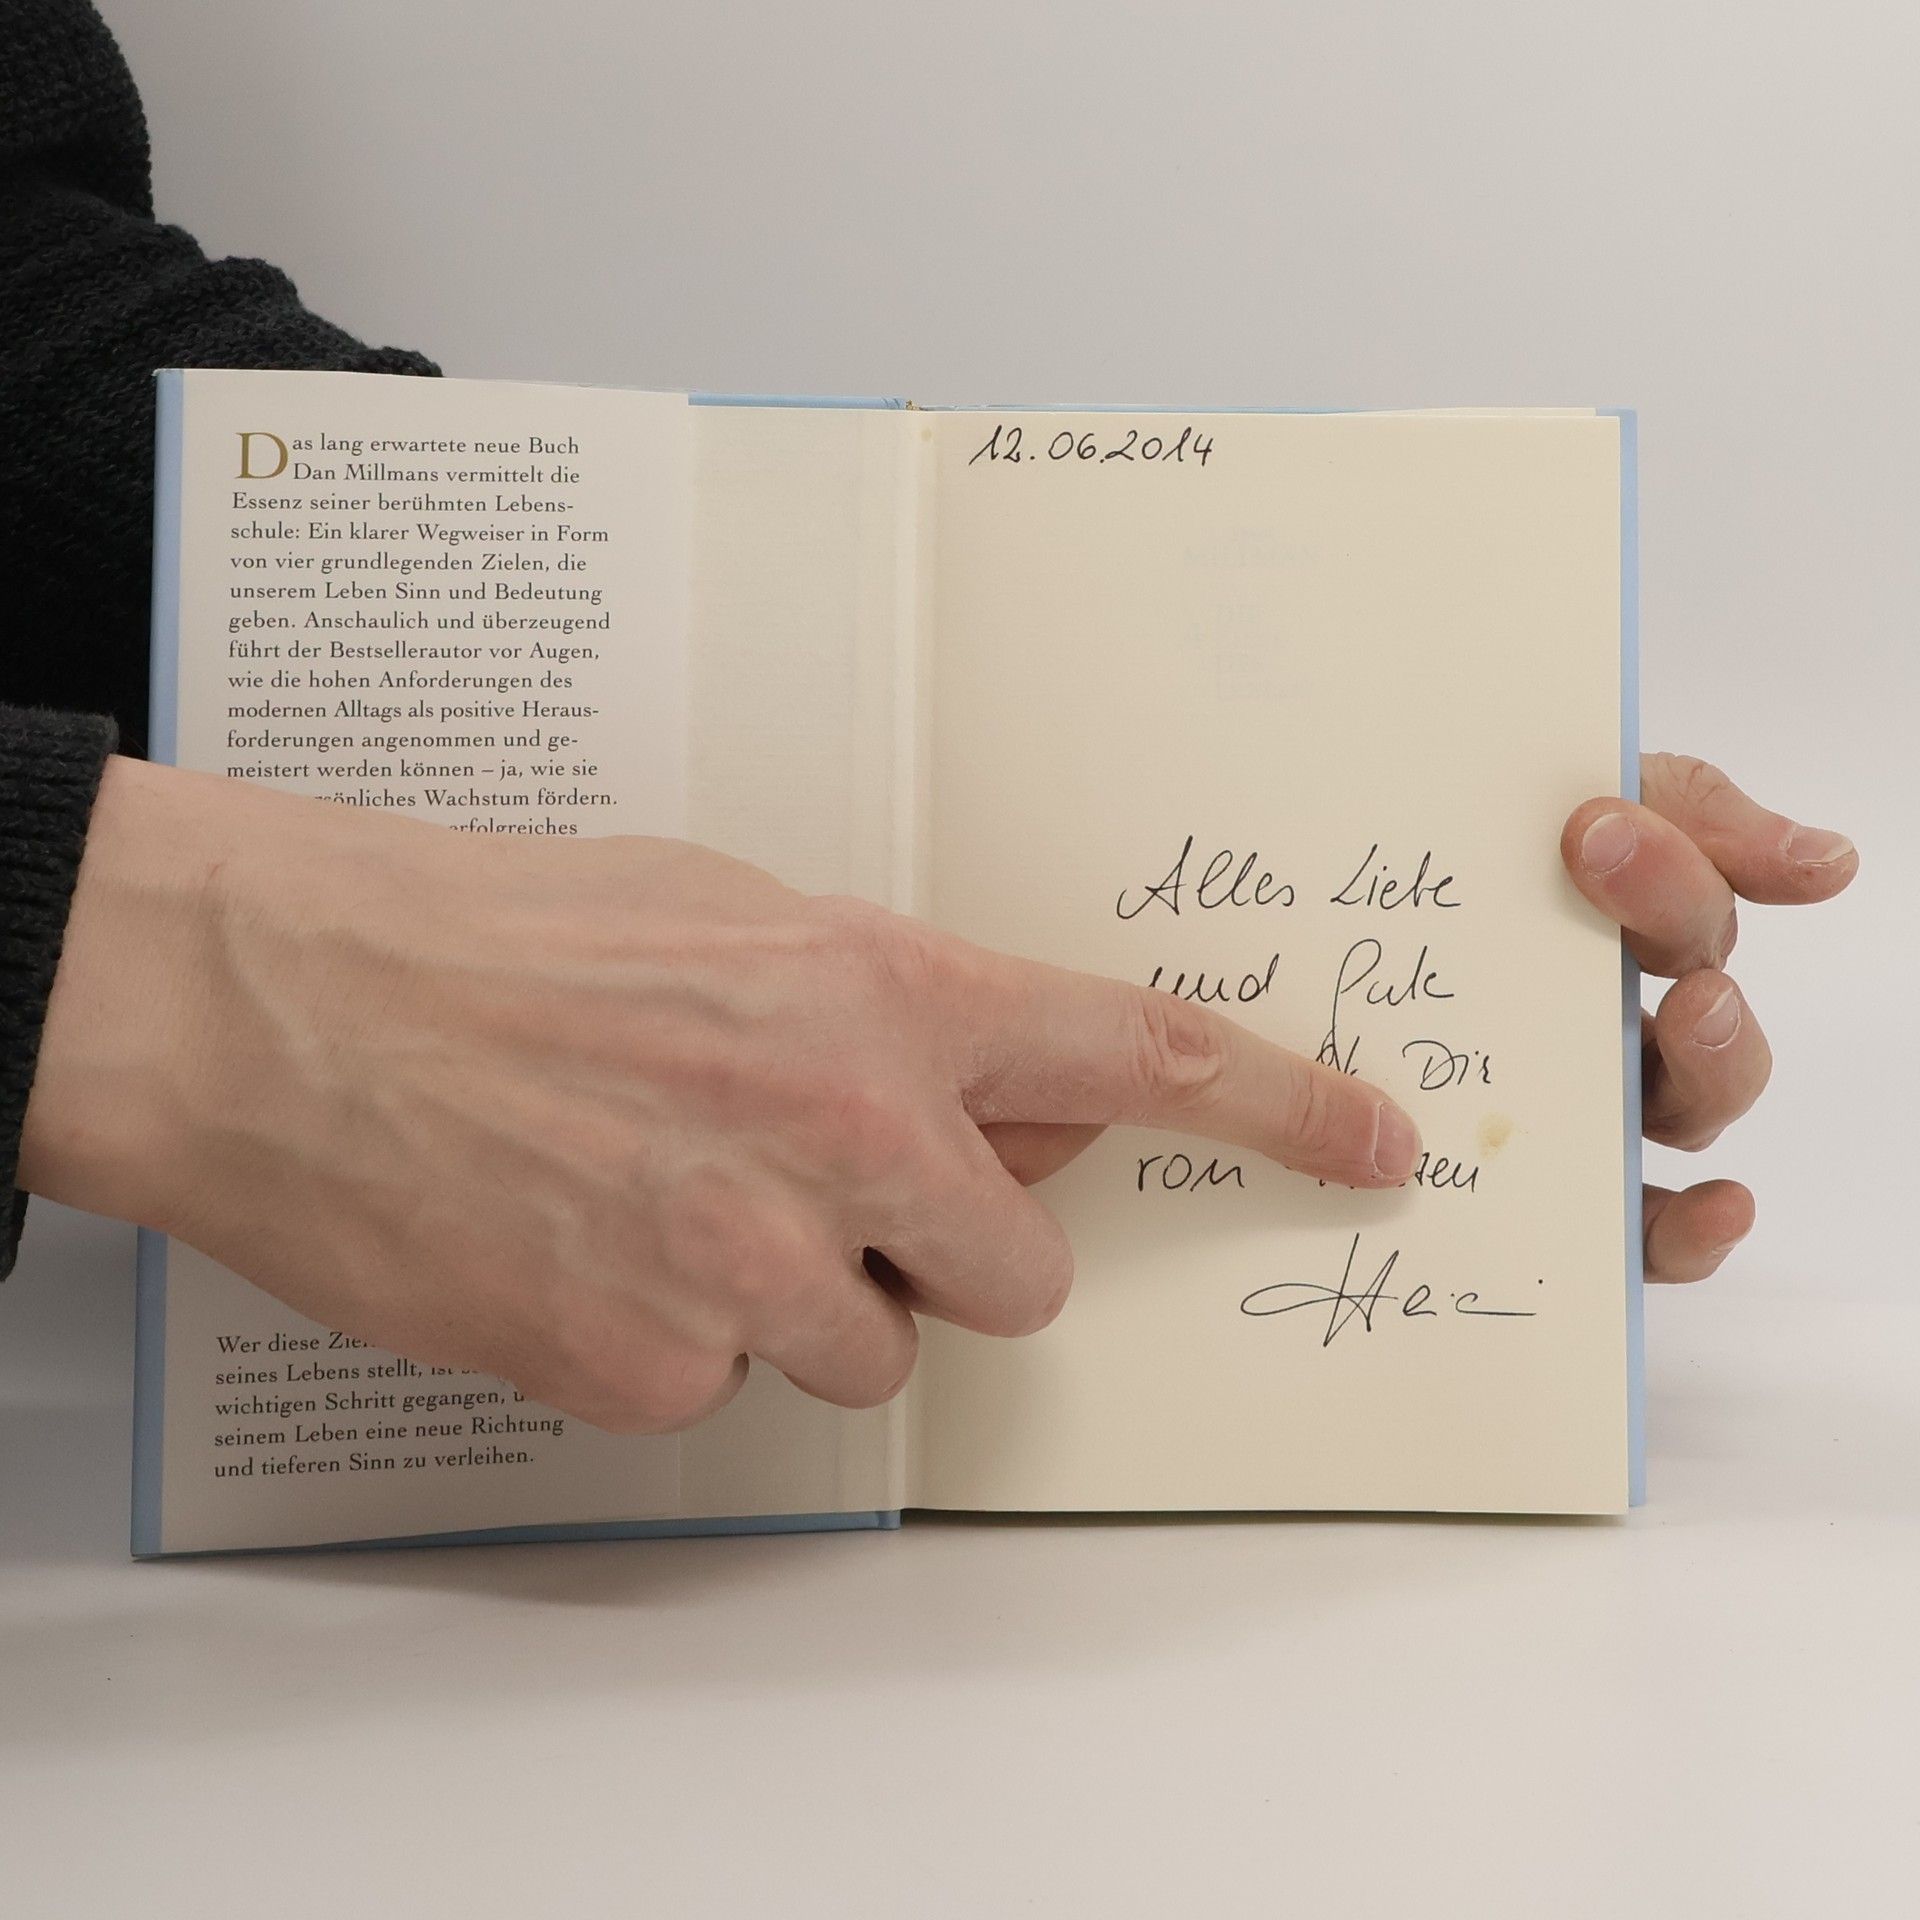 Das lang erwartete neue Buch
Dan Millmans vermittelt die
Essenz seiner berühmten Lebens-
schule: Ein klarer Wegweiser in Form
von vier grundlegenden Zielen, die
unserem Leben Sinn und Bedeutung
geben. Anschaulich und überzeugend
führt der Bestsellerautor vor Augen,
wie die hohen Anforderungen des
modernen Alltags als positive Heraus-
forderungen angenommen und ge-
meistert werden können – ja, wie sie
Wachstum fördern.
erfolgreiches
Wer diese
seines Lebens stellt, ist
wichtigen Schritt gegangen,
seinem Leben eine neue Richtung
und tieferen Sinn zu verleihen.
12.06.2014
Alles Liebe
und Gute
Dir
von